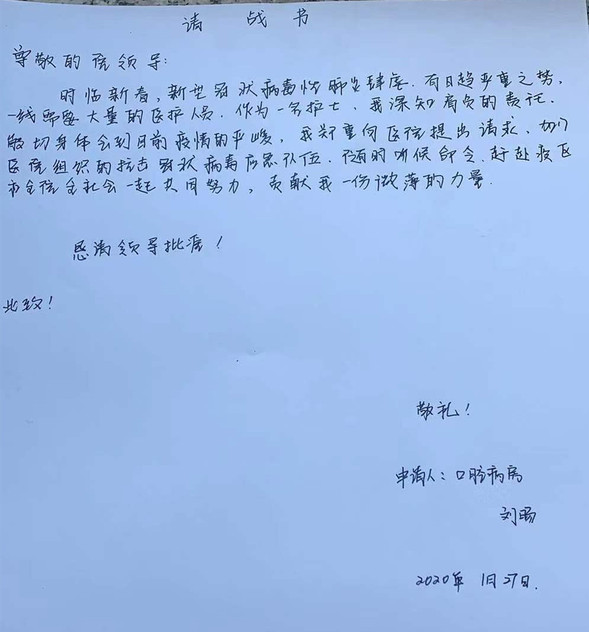 请战书
尊敬的院领导:
时临新春,新型冠状病毒性肺炎肆虐.有日趋严重之势,
一线需要大量的医护人员.作为一名护士,我深知肩负的责任.
能切身体会到目前疫情的严峻,我郑重向医院提出请求,加入
医院组织的抗击冠状病毒应急队伍.随时听候命令.赶赴疫区
和全院全社会一起共同努力,贡献我一份微薄的力量.
恳请领导批准!
此致!
敬礼!
申请人:口腔病房
刘畅
2020年1月27日.